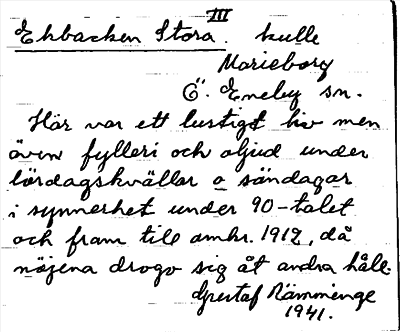 III
Ekbacken Stora. kulle
Marieborg
Ö. Eneby sn.
Här var ett lustigt liv men
även fylleri och oljud under
lördagskvällar o söndagar
i synnerhet under 90-talet
och fram till omkr. 1912, då
nöjena drogo sig åt andra håll.
Gustaf Rämminge
1941.